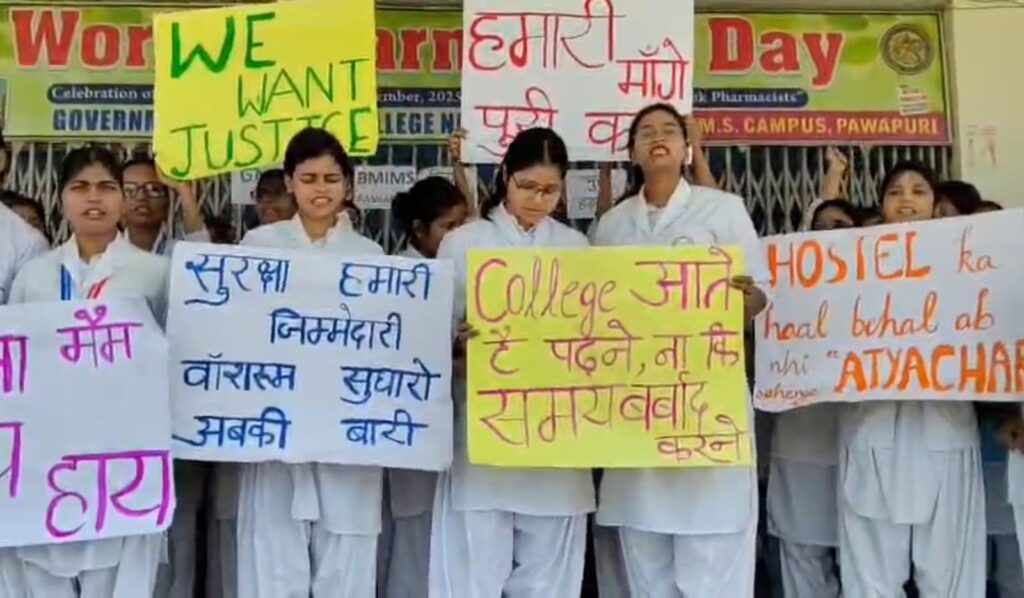 Wor
Day
Celebration of
ember, 2025
k Pharmacists"
GOVERNM
COLLEGE N
M.S. CAMPUS, PAWAPURI
WE
WANT
JUSTICE
हमारी
माँगे
पूरी क
BMIMS
मैम
हाय
सुरक्षा हमारी
जिम्मेदारी
वॉशरूम सुधारो
अबकी बारी
College आते
है पढ़ने, ना कि
समय बर्बाद
करने
HOSTEL ka
haal behal ab
nhi "ATYACHAR